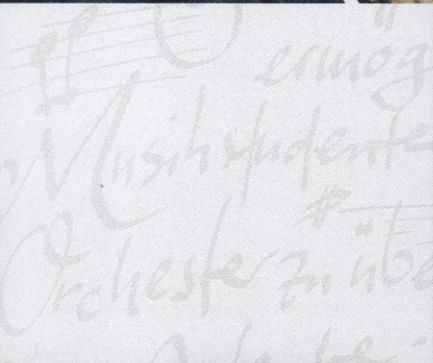 ermög
Musikstudente
Orchester zu übe